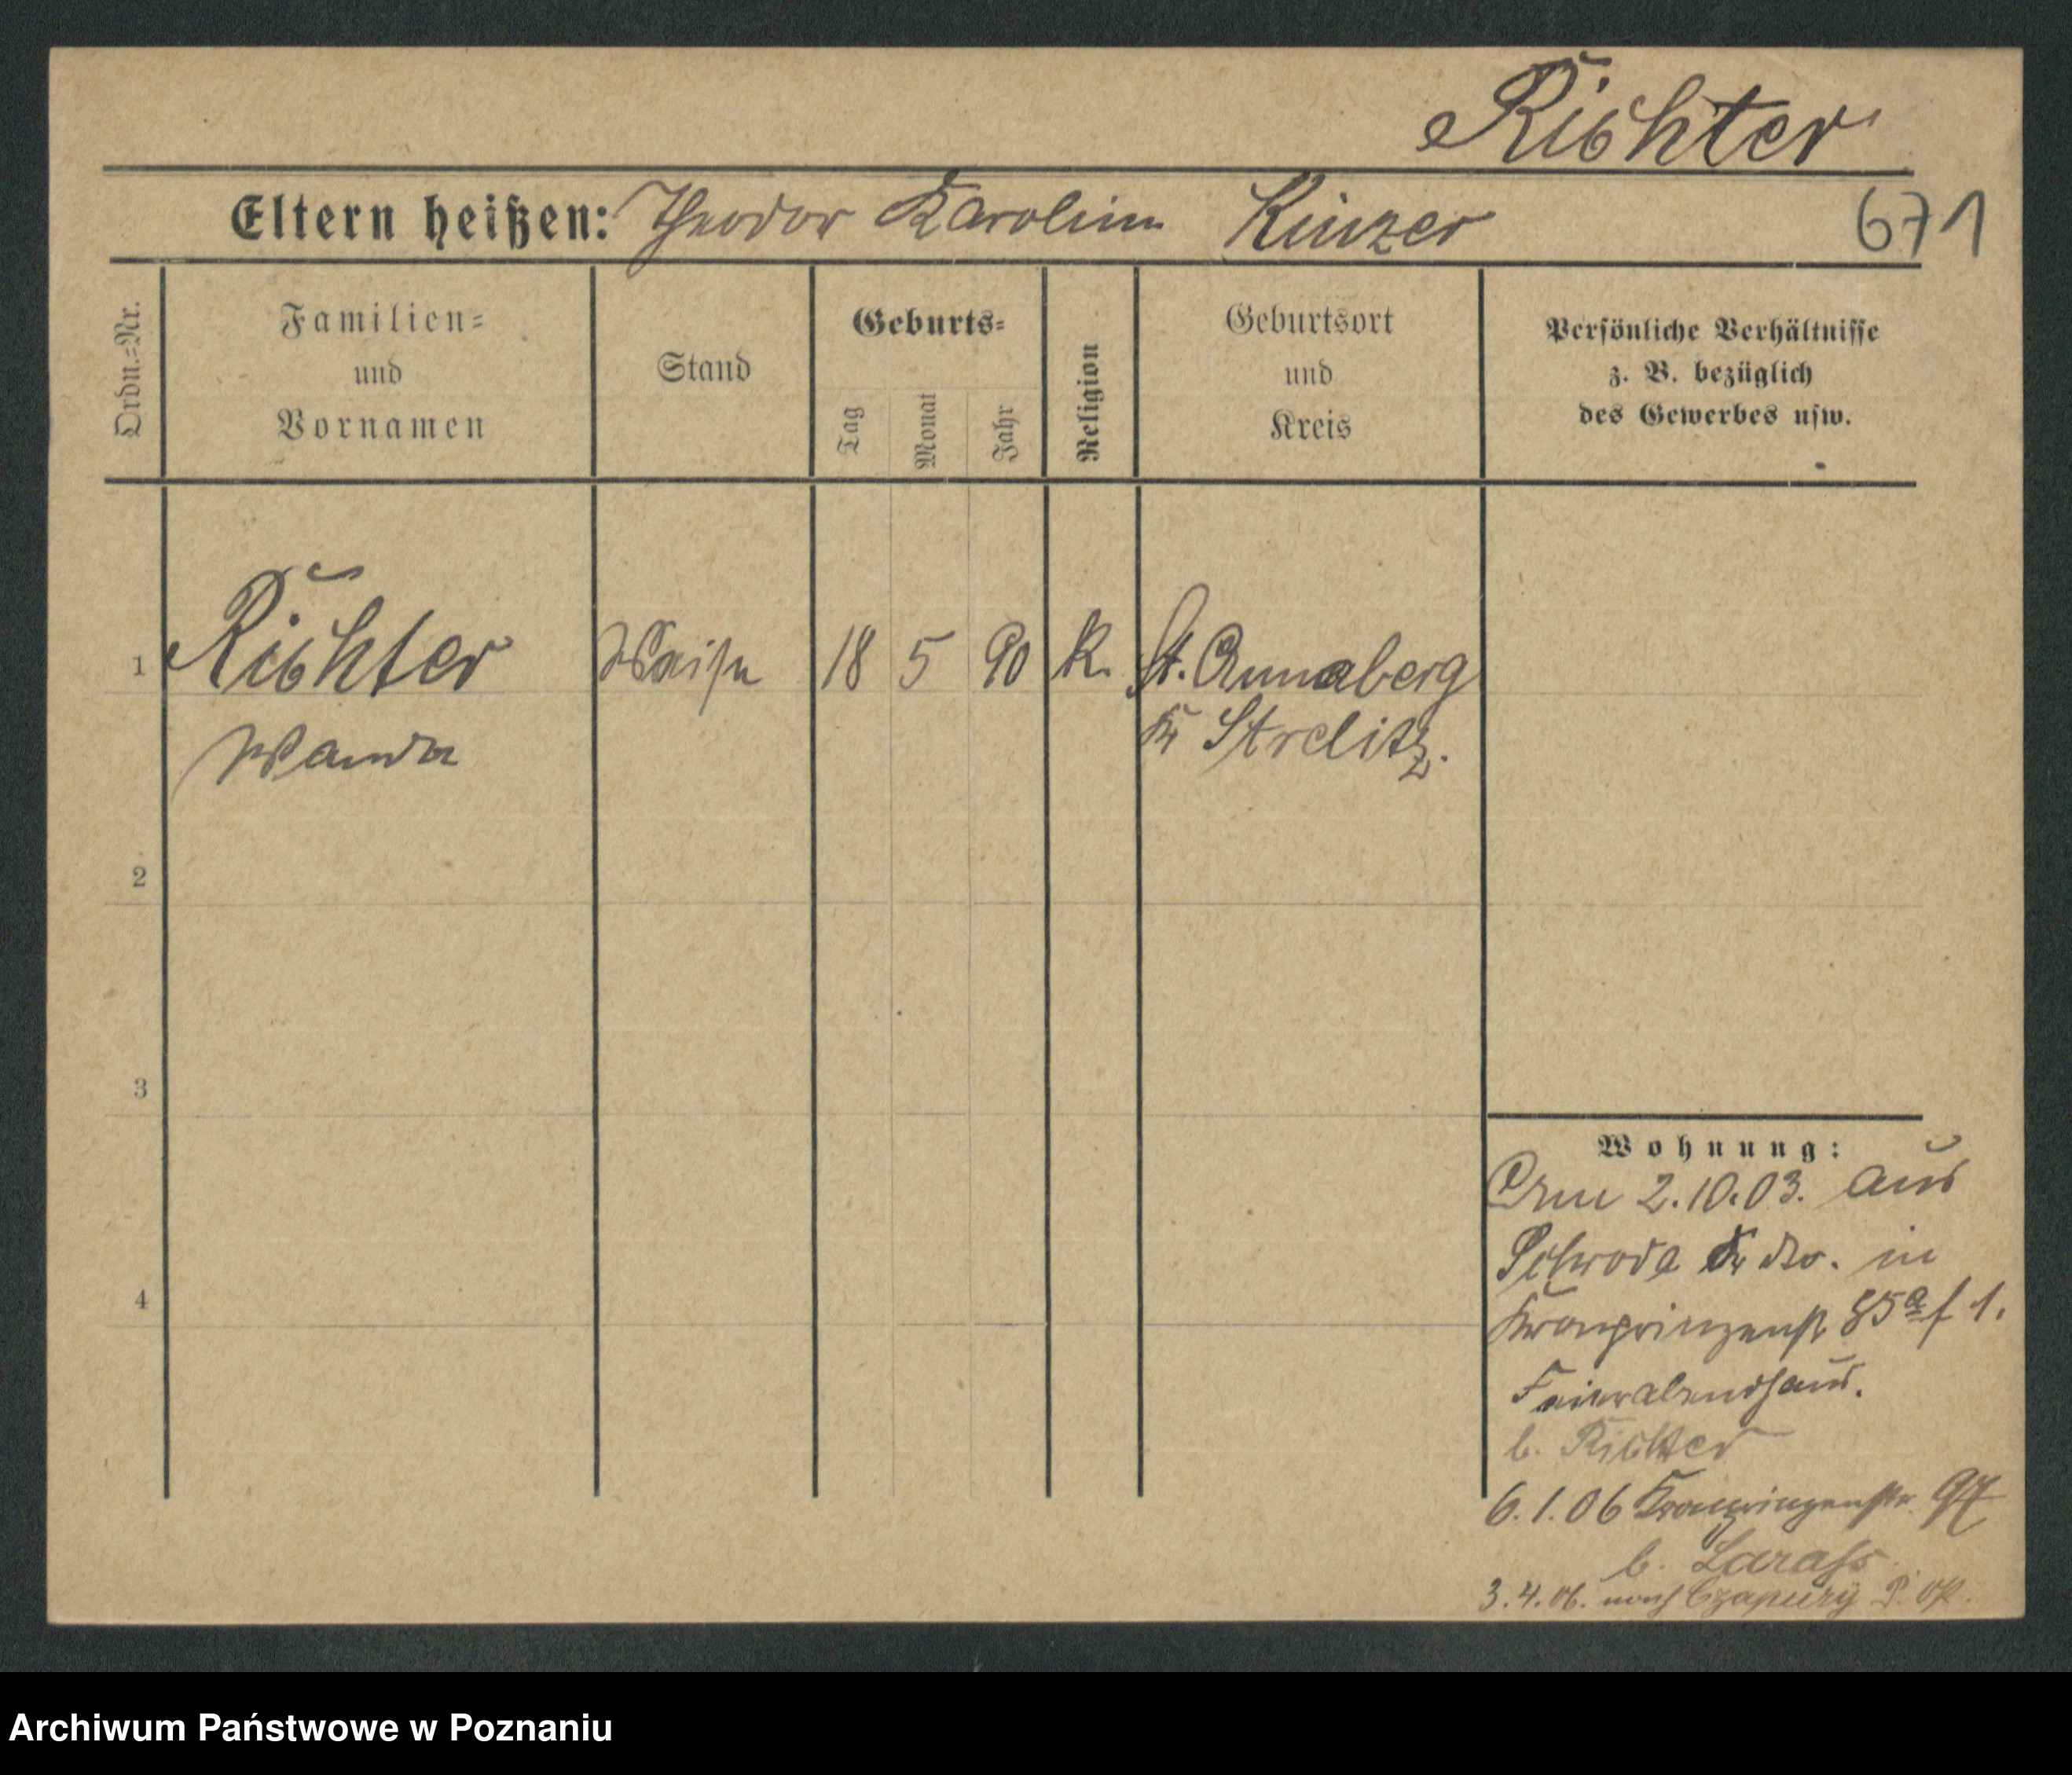 Richter
Eltern heißen: Theodor Karoline Kinzer
671
Ordn.=Nr.
Familien=
und
Vornamen
Stand
Geburts=
Tag
Monat
Jahr
Religion
Geburtsort
und
Kreis
Persönliche Verhältnisse
z. B. bezüglich
des Gewerbes usw.
1 Richter Waise 18 5 90 K. St. Annaberg
Wanda Kr Strelitz.
2
3
4
Wohnung:
Am 2.10.03. aus
Kr dto. in
Kronprinzenst 85a f 1.
Feierabendhaus.
b. Richter
6.1.06 Kronprinzenstr. 97
b. Larass
3.4.06. nach Czapury P.
Archiwum Państwowe w Poznaniu